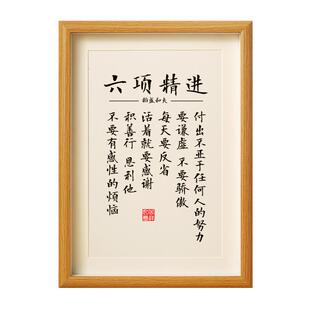 六项精进
稻盛和夫
付出不亚于任何人的努力
要谦虚 不要骄傲
每天要反省
活着就要感谢
积善行 思利他
不要有感性的烦恼